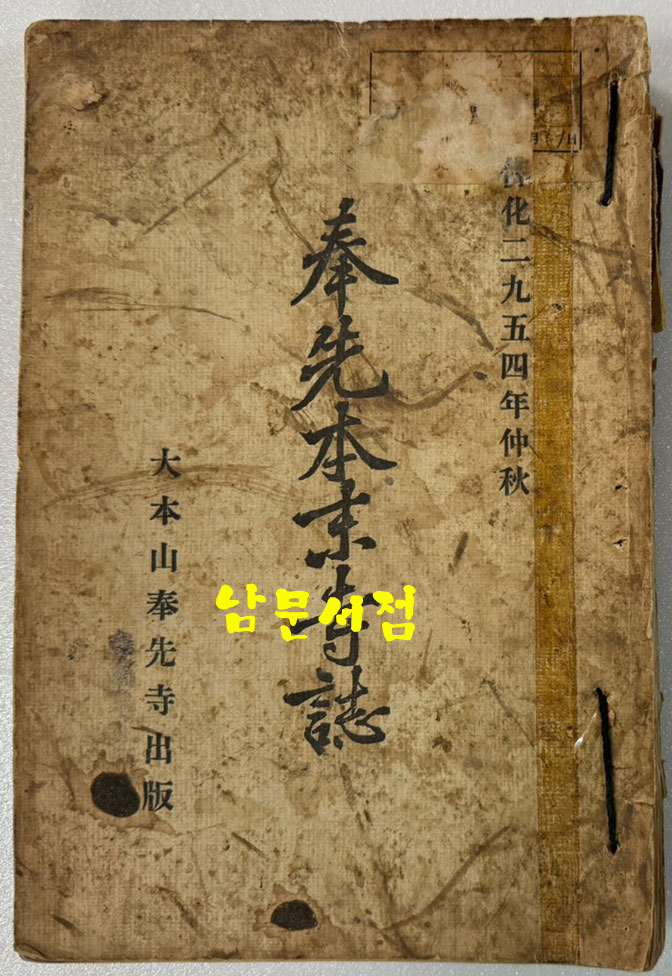 佛化二九五四年仲秋
奉先本末寺誌
大本山奉先寺出版
남문서점